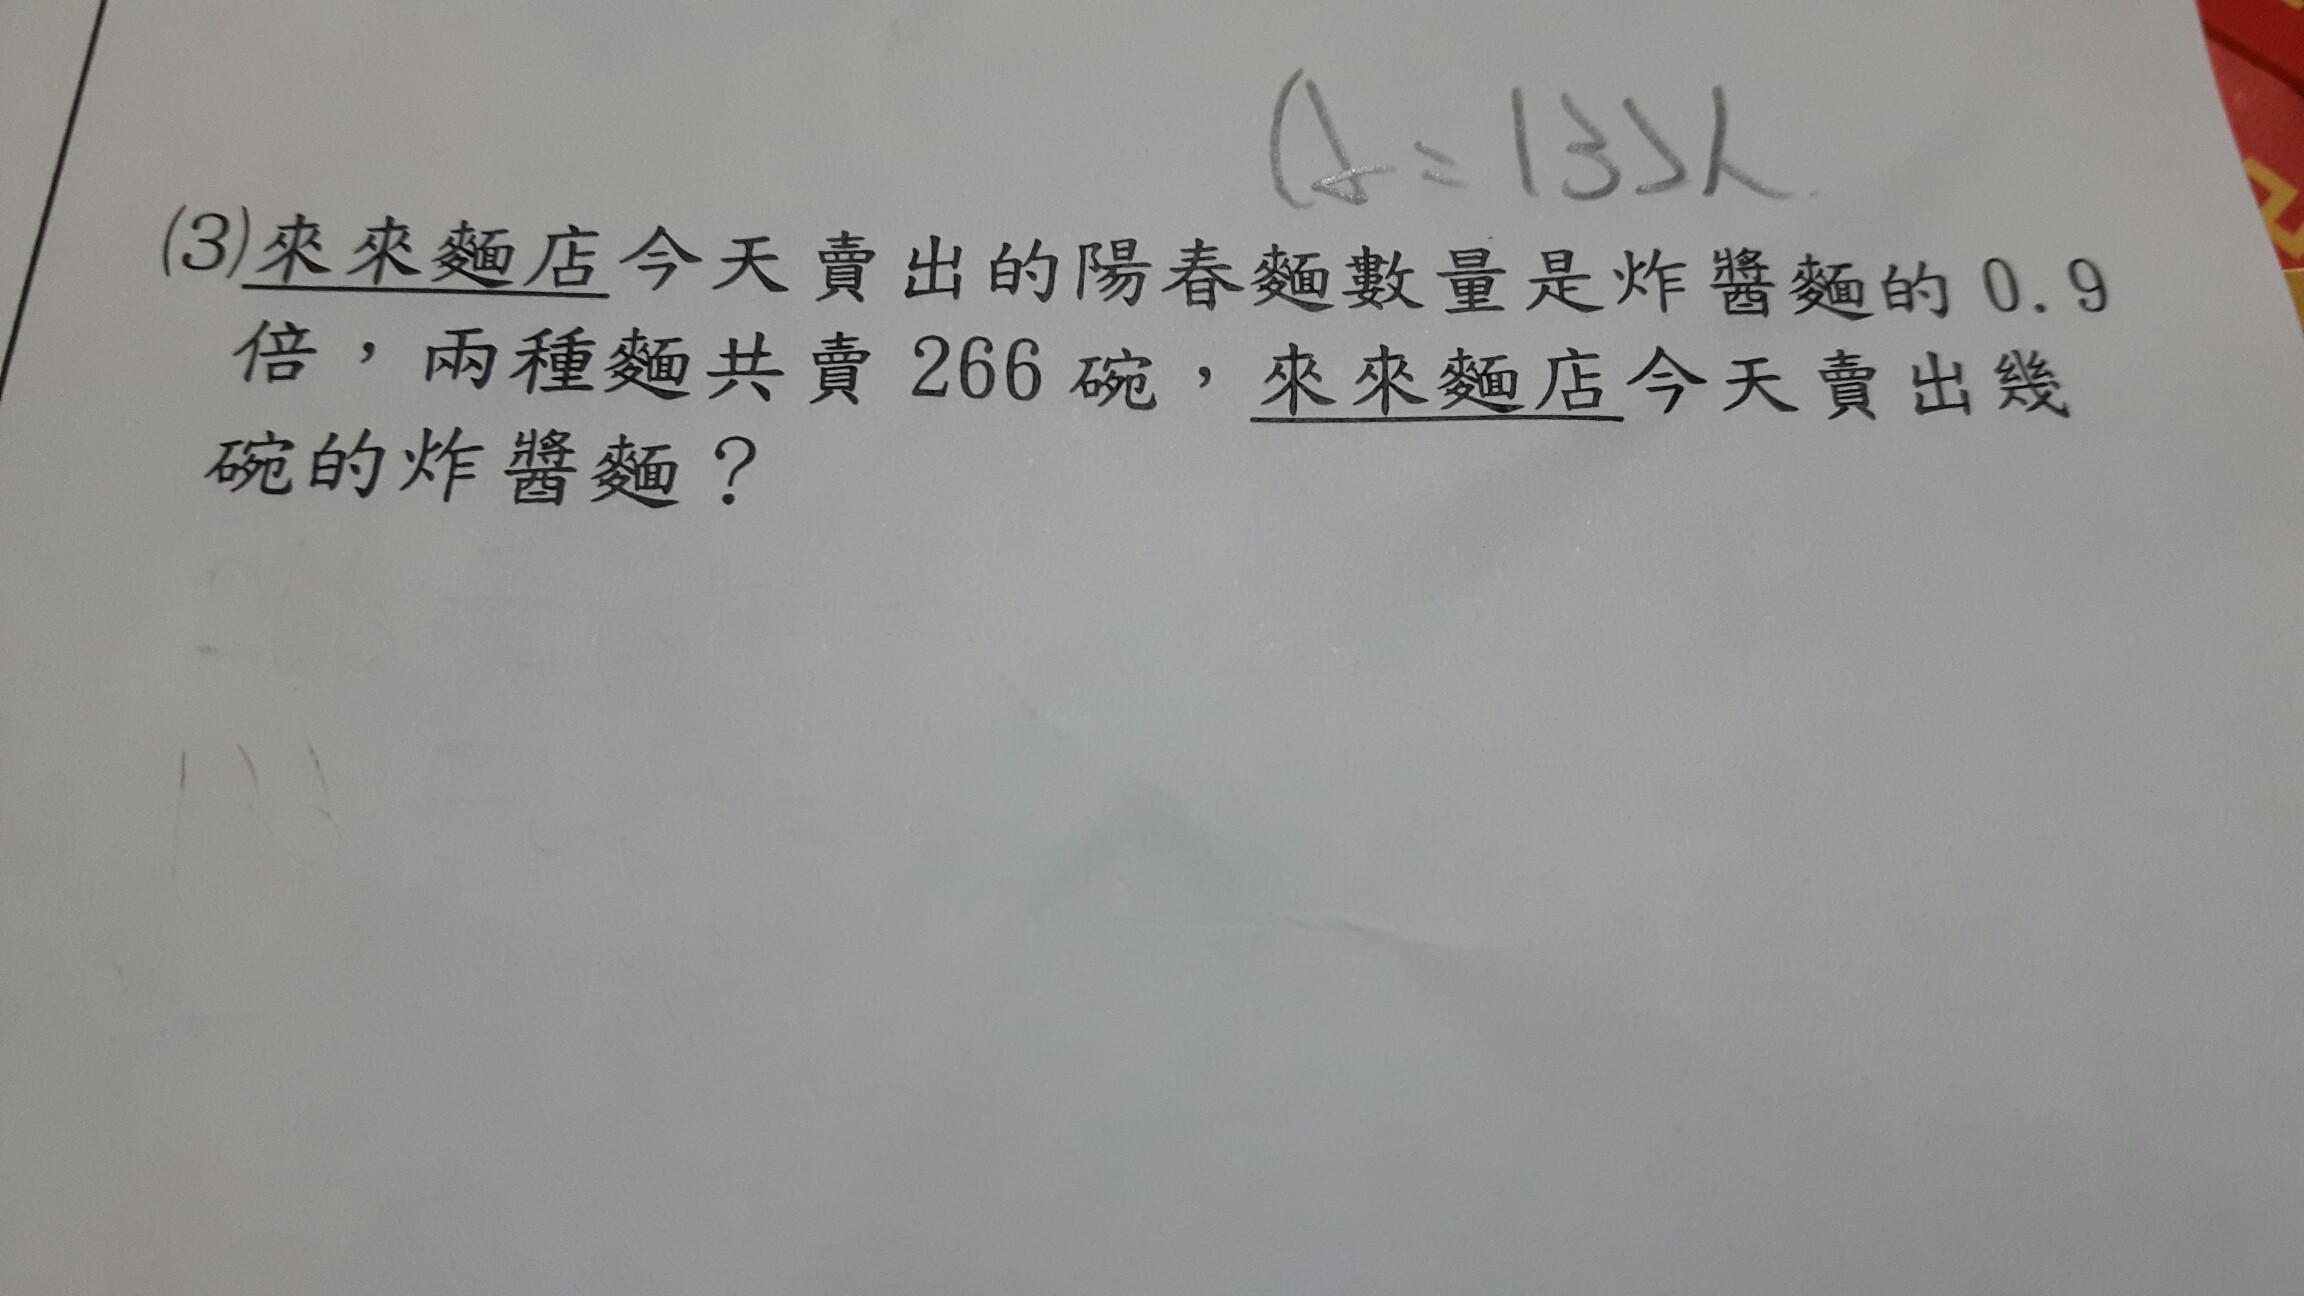 A=133人
(3)來來麵店今天賣出的陽春麵數量是炸醬麵的0.9
倍，兩種麵共賣266碗，來來麵店今天賣出幾
碗的炸醬麵？